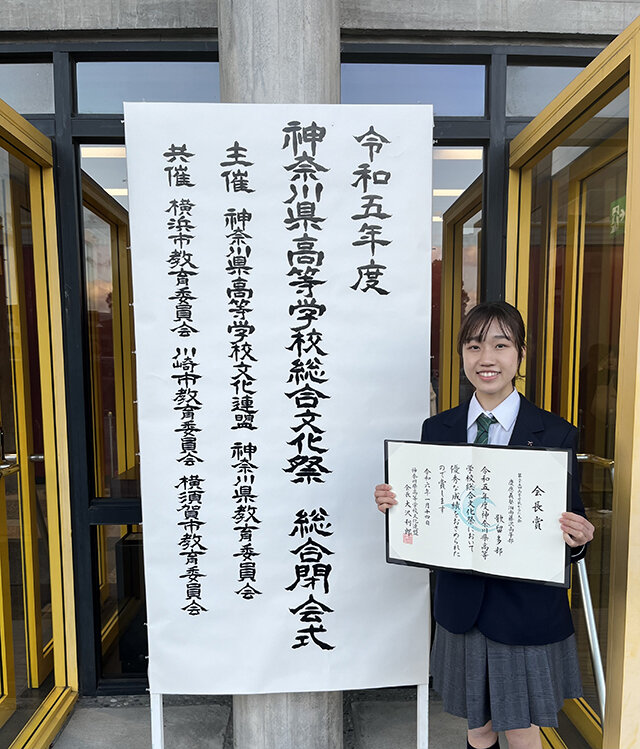 令和五年度
神奈川県高等学校総合文化祭 総合閉会式
主催 神奈川県高等学校文化連盟 神奈川県教育委員会
共催 横浜市教育委員会 川崎市教育委員会 横須賀市教育委員会
会長賞
慶應義塾湘南藤沢高等部
歌留多部
令和五年度神奈川県高等
学校総合文化祭において
優秀な成績をおさめられた
ので賞します
令和六年一月十四日
神奈川県高等学校文化連盟